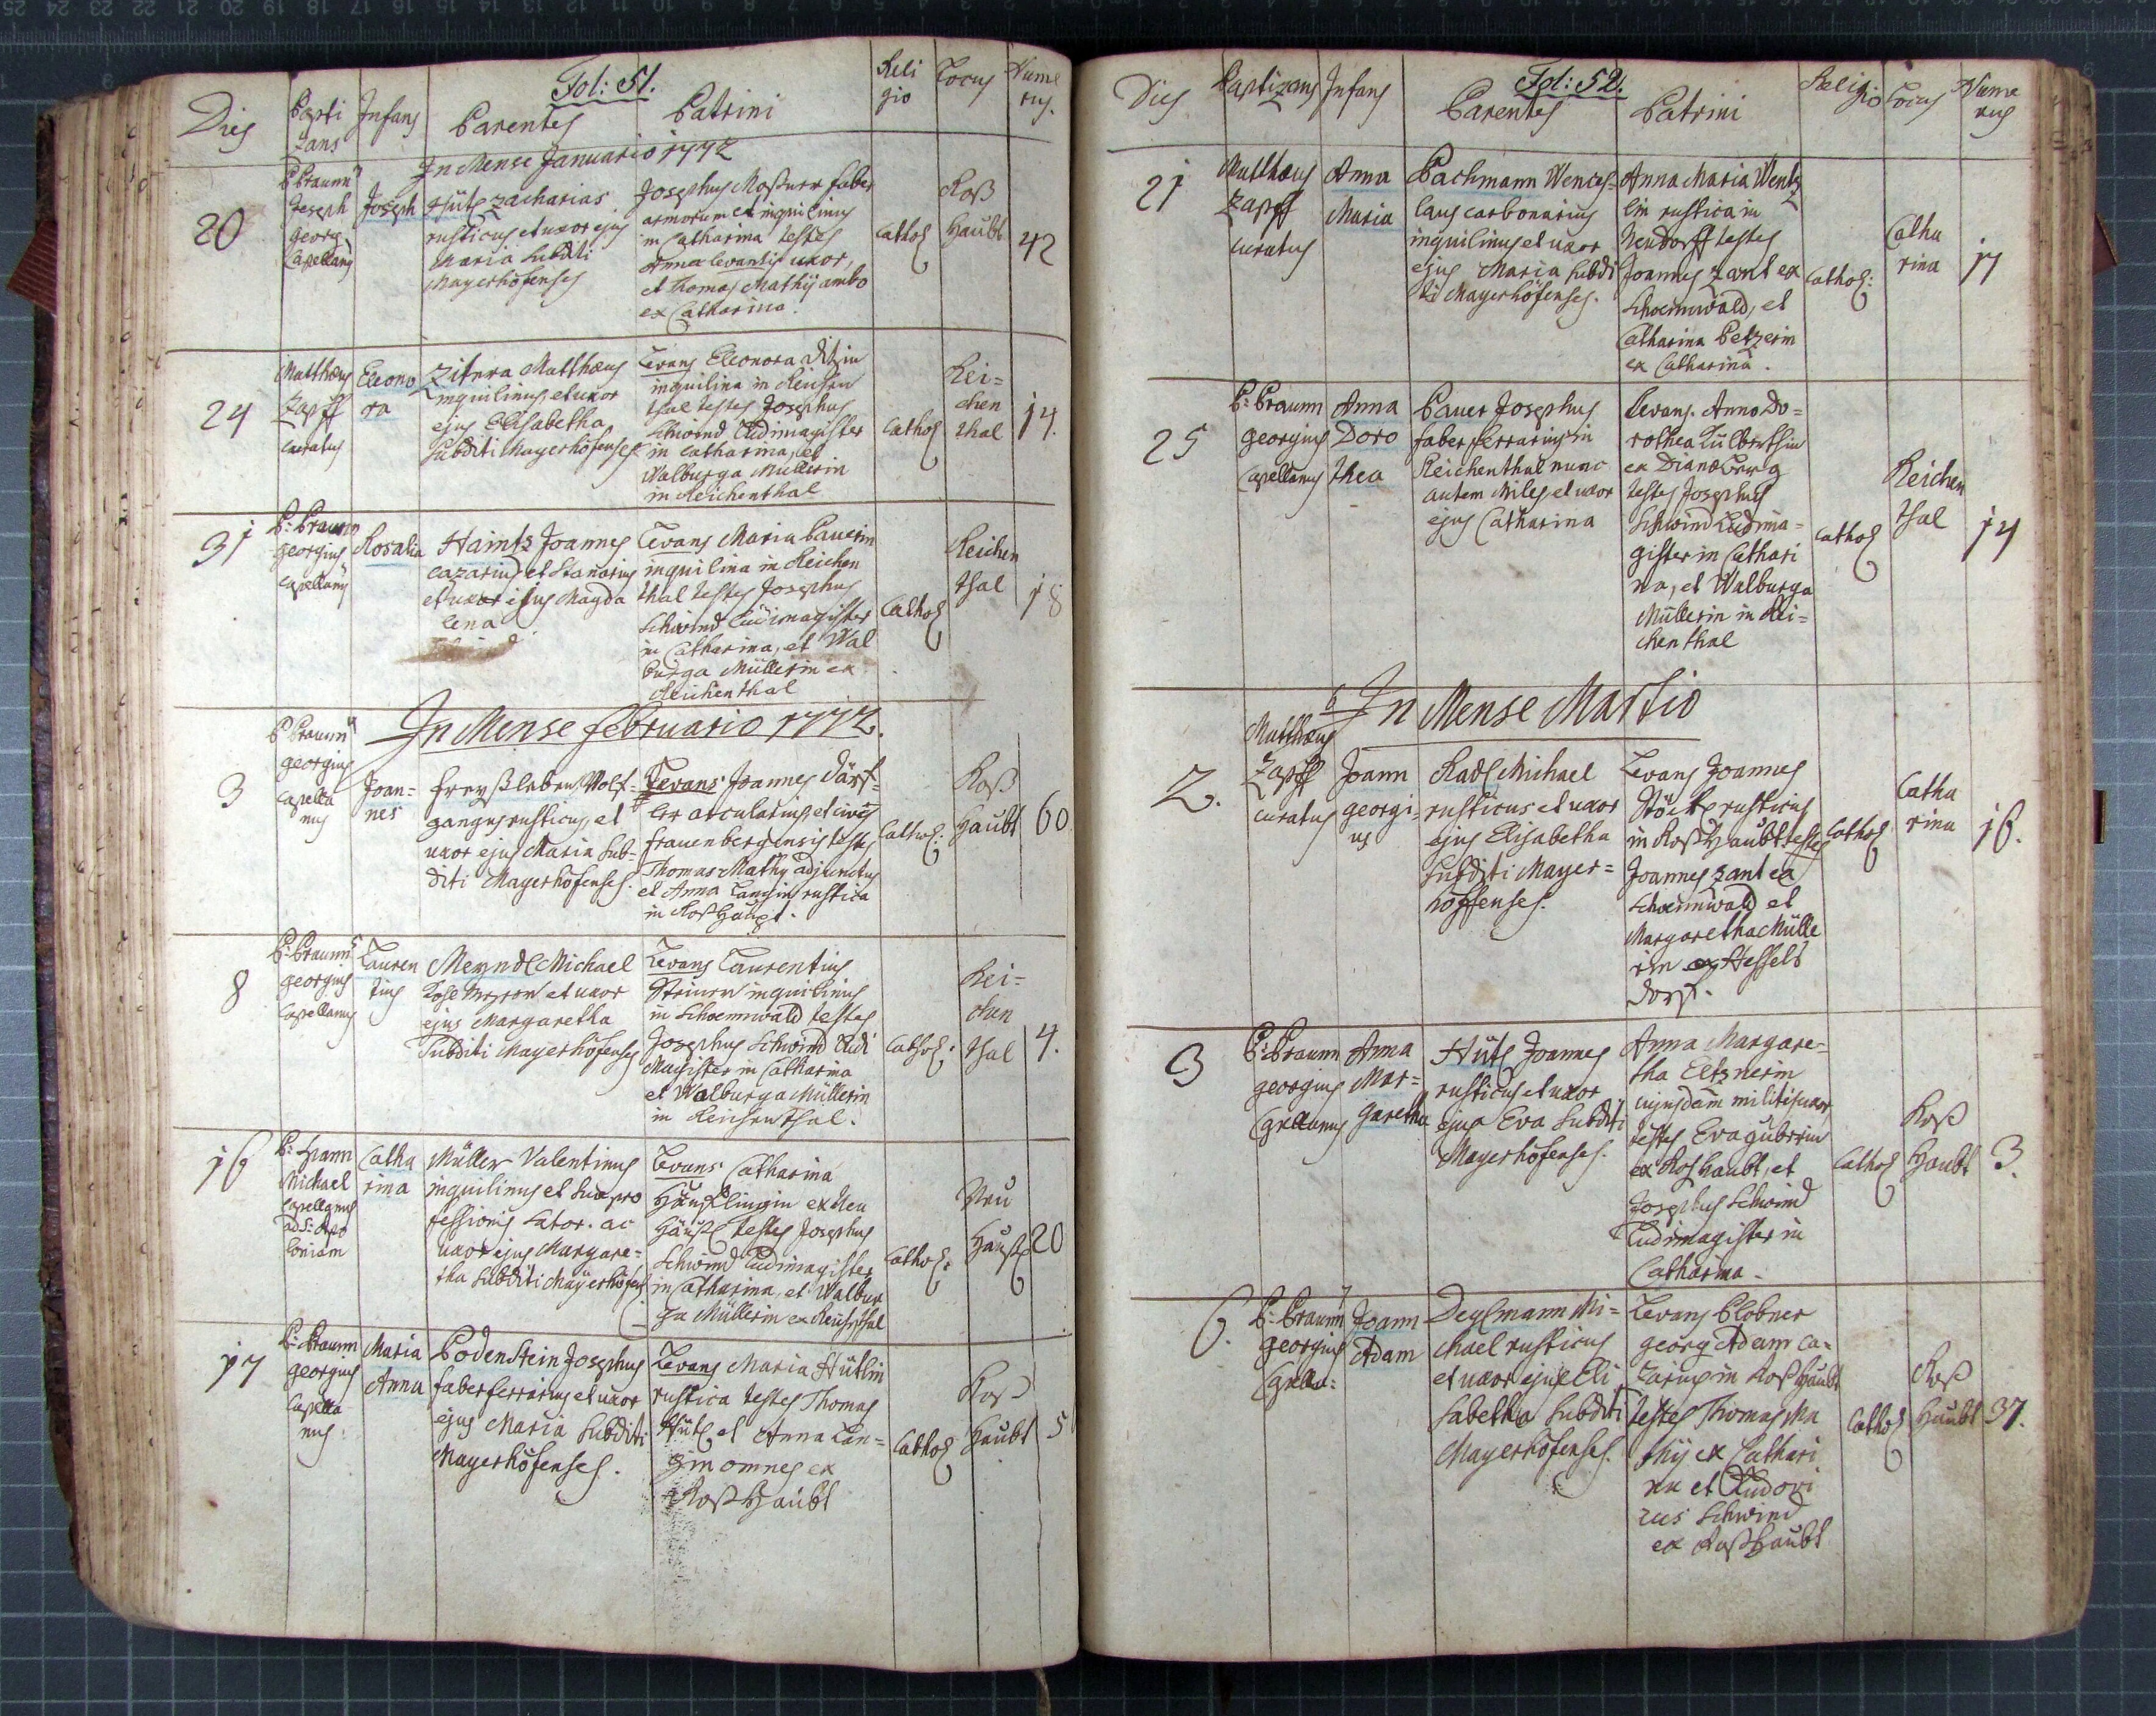 Fol: 51.
Dies
Bapti
zans
Infans
Parentes
Patrini
Reli
gio
Locus
Nume
rus.
In Mense Januario 1772
20
P Braunn
Joseph
georg
Capellanus
Joseph
Hütl Zacharias
rusticus et uxor ejus
Maria Subditi
Mayerhöfenses
Josephus Moßner faber
armorum et inquilinus
in Catharina testes
Anna levantis uxor,
et Thomas Mathij ambo
ex Catharina.
Cathol
Roß
Haubt
42
24
Matthæus
Zapff
curatus
Eleono
ra
Zitnra Matthæus
inquilinus et uxor
ejus Elisabetha
Subditi Mayerhöfenses
Levans Eleonora
inquilina in Reichen
thal testes Josephus
Schwind Ludimagister
in Catharina, et
Walburga Müllerin
in Reichenthal
Cathol
Rei=
chen
thal
14.
31
P: Braunn
georgius
Capellanus
Rosalia
Haintz Joannes
cazarius et
et uxor ejus Magda
lena
Levans Maria Bauerin
inquilina in Reichen
thal testes Josephus
Schwind Ludimagister
in Catharina, et Wal
burga Müllerin ex
Reichenthal
Cathol
Reichen
thal
18
In Mense februario 1772.
3
P Braunn
georgius
Capella
nus
Joan=
nes
freyßleben Wolf=
gangus rusticus, et
uxor ejus Maria Sub=
diti Mayerhöfenses.
Levans Joannes Därf=
ler arcularius et civis
frauenbergensis testes
Thomas Mathy adjunctus
et Anna Langin rustica
in Roßhaupt.
Cathol:
Roß
Haubt
60
8
P: Braunn
georgius
Capellanus
Lauren
tius
Meyndl Michael
et uxor
ejus Margaretha
Subditi Mayerhöfenses
Levans Laurentius
Steiner inquilinus
in Schoennwald testes
Josephus Schwind Ludi
Magister in Catharina
et Walburga Müllerin
in Reichenthal.
Cathol:
Rei=
chen
thal
4.
16
P: Hann
Michael
Capellanus
Catha
rina
Müller Valentinus
inquilinus et suæ pro
fessionis Sator. ac
uxor ejus Margare=
tha Subditi Mayerhöfens
Levans Catharina
ex Neu
Häusl testes Josephus
Schwind Ludimagister
in Catharina, et Walbur
ga Müllerin ex Reichthal
Cathol:
Neu
Häusl
20
17
P: Braunn
georgius
Capella
nus
Maria
Anna
Bodenstein Josephus
faber ferrarius et uxor
ejus Maria Subditi
Mayerhöfenses.
Levans Maria Hütlin
rustica testes Thomas
Hütl et Anna Lan=
gin omnes ex
Roßhaubt
Cathol
Roß
Haubt
5
Fol: 52.
Dies
Baptizans
Infans
Parentes
Patrini
Religio
Locus
Nume
rus
21
Matthæus
Zapff
curatus
Anna
Maria
Bachmann Wences=
laus carbonarius
inquilinus et uxor
ejus Maria Subdi
ti Mayerhöfenses.
Anna Maria Wentz
lin rustica in
Neudorff testes
Joannes Zant ex
Schoennwald, et
Catharina Betzerin
ex Catharina.
Cathol:
Catha
rina
17
25
P: Braunn
georgius
Capellanus
Anna
Doro
thea
Bauer Josephus
faber ferrarius in
Reichenthal nunc
autem Miles, et uxor
ejus Catharina
Levans. Anna Do=
rothea
ex Dianæberg
testes Josephus
Schwind Ludima=
gister in Cathari
na, et Walburga
Müllerin in Rei=
chenthal
Cathol
Reichen
thal
14
In Mense Martio
2.
Matthæus
Zapff
curatus
Joann
georgi
us
Radl Michael
rusticus et uxor
ejus Elisabetha
Subditi Mayer=
höffenses.
Levans Joannes
Stöckl rusticus
in Roßhaubt testes
Joannes Zant ex
Schoennwald et
Margaretha Mülle
rin ex Hessels
dorf.
Cathol
Catha
rina
16.
3
P: Braunn
georgius
Capellanus
Anna
Mar=
garetha
Hütl Joannes
rusticus et uxor
ejus Eva Subditi
Mayerhöfenses.
Anna Margare=
tha Eltznerin
cujusdam militis uxor
testes Eva gubrin
ex Roßhaubt, et
Josephus Schwind
Ludimagister in
Catharina.
Cathol
Roß
Haubt
3.
6.
P: Braunn
georgius
Capella:
Joann
Adam
Deglmann Mi=
chael rusticus
et uxor ejus Eli
sabetha Subditi
Mayerhöfenses.
Levans Plobner
georg Adam ca=
zarius in Roßhaubt
testes Thomas Ma
thij ex Cathari
na et Ludovi
cus Schwind
ex Roßhaubt
Cathol
Roß
Haubt
37.